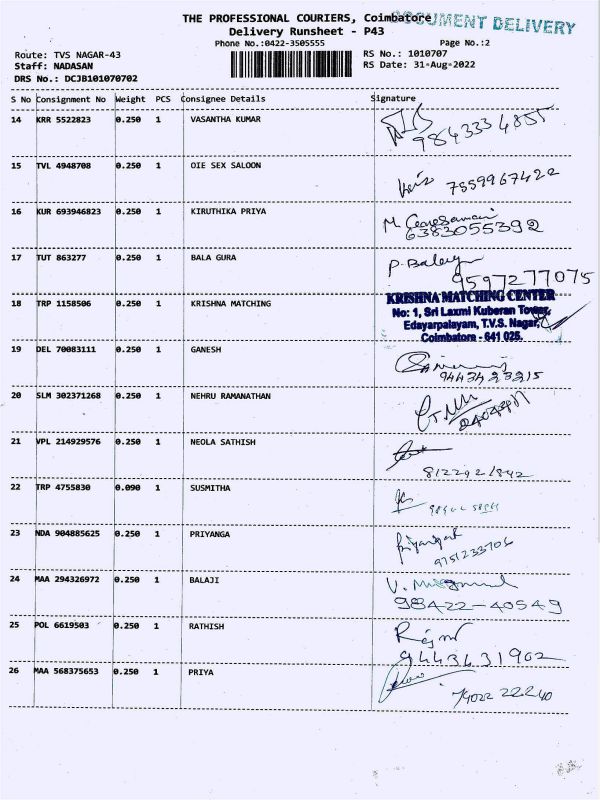 THE PROFESSIONAL COURIERS, Coimbatore
DOCUMENT DELIVERY
Delivery Runsheet - P43
Phone No.:0422-3505555 Page No.:2
Route: TVS NAGAR-43 RS No.: 1010707
Staff: NADASAN RS Date: 31-Aug-2022
DRS No.: DCJB101070702
S No Consignment No Weight PCS Consignee Details Signature
14 KRR 5522823 0.250 1 VASANTHA KUMAR
9843334855
15 TVL 4948708 0.250 1 OIE SEX SALOON
7559967422
16 KUR 693946823 0.250 1 KIRUTHIKA PRIYA M
6383055392
17 TUT 863277 0.250 1 BALA GURA P.
9597277075
18 TRP 1158506 0.250 1 KRISHNA MATCHING KRISHNA MATCHING CENTER
No: 1, Sri Laxmi Kuberan Tower,
Edayarpalayam, T.V.S. Nagar,
Coimbatore - 641 025.
19 DEL 70083111 0.250 1 GANESH
9443423215
20 SLM 302371268 0.250 1 NEHRU RAMANATHAN
21 VPL 214929576 0.250 1 NEOLA SATHISH
8122921842
22 TRP 4755830 0.090 1 SUSMITHA
23 NDA 904885625 0.250 1 PRIYANGA
9751233706
24 MAA 294326972 0.250 1 BALAJI V.
98422-40549
25 POL 6619503 0.250 1 RATHISH
9443431902
26 MAA 568375653 0.250 1 PRIYA
74022 22240